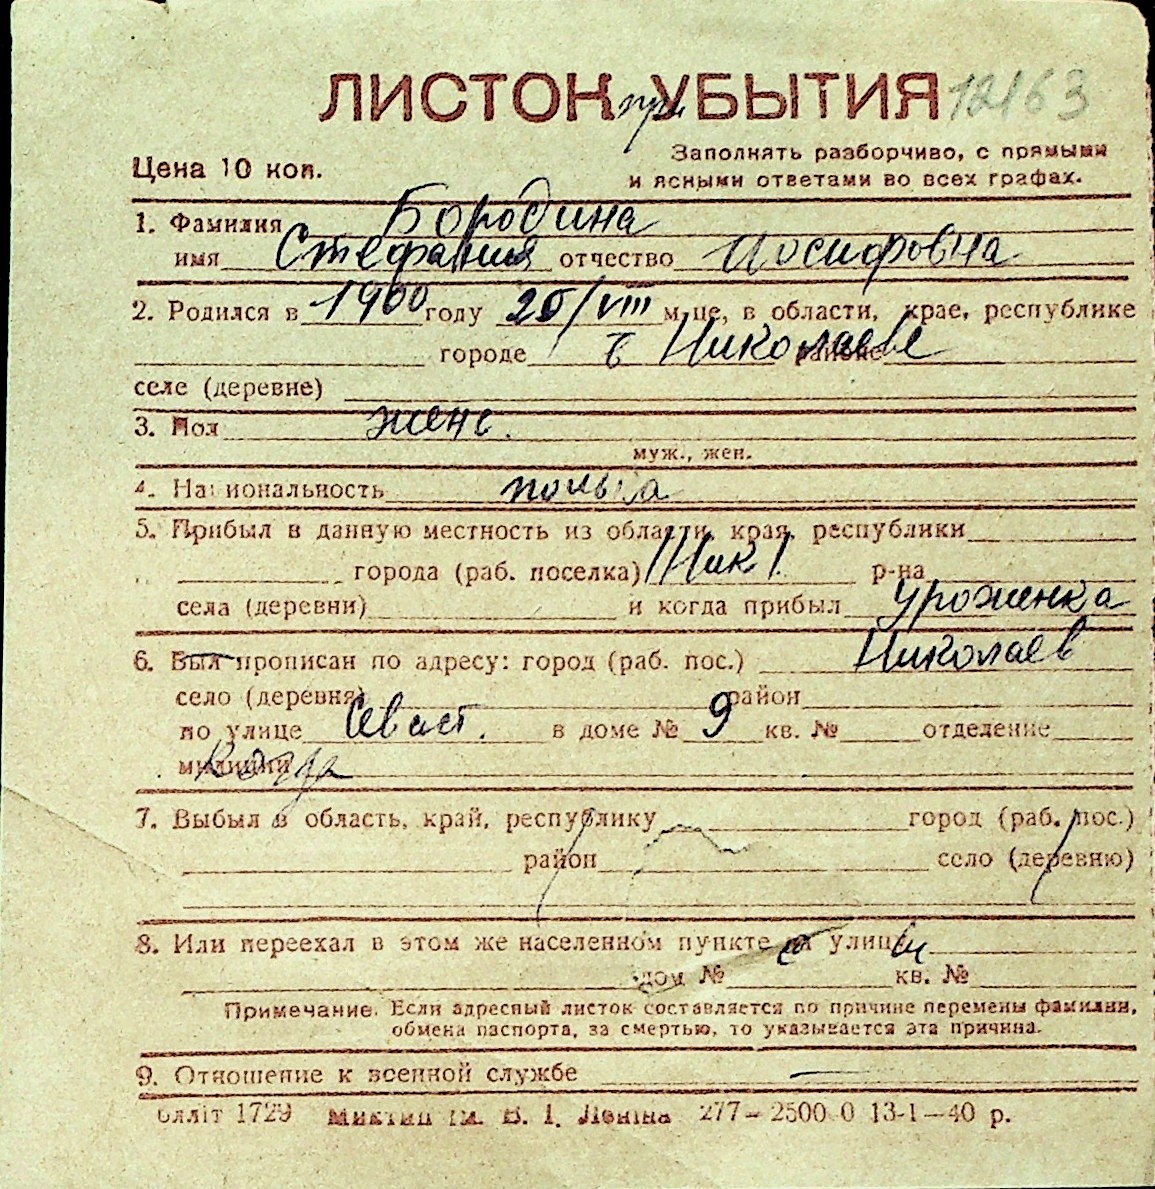 ЛИСТОК при УБЫТИЯ 12163
Цена 10 коп.
Заполнять разборчиво, с прямыми
и ясными ответами во всех графах.
1. Фамилия Бородина
имя Стефания отчество Иосифовна
2. Родился в 1900 году 25/VIII м-це, в области, крае, республике
городе в Николаеве районе
селе (деревне)
3. Пол женс.
муж., жен.
4. Национальность полька
5. Прибыл в данную местность из области, края, республики
города (раб. поселка) Ник р-на
села (деревни) и когда прибыл уроженка
6. Был прописан по адресу: город (раб. пос.) Николаев
село (деревня) район
по улице Сваст. в доме № 9 кв. № отделение
милиции
7. Выбыл в область, край, республику город (раб. пос.)
район село (деревню)
8. Или переехал в этом же населенном пункте на улицу
дом № кв. №
Примечание. Если адресный листок составляется по причине перемены фамилии,
обмена паспорта, за смертью, то указывается эта причина.
9. Отношение к военной службе —
Облліт 1729 ім. В. І. Леніна 277—2500 0 13-1—40 р.